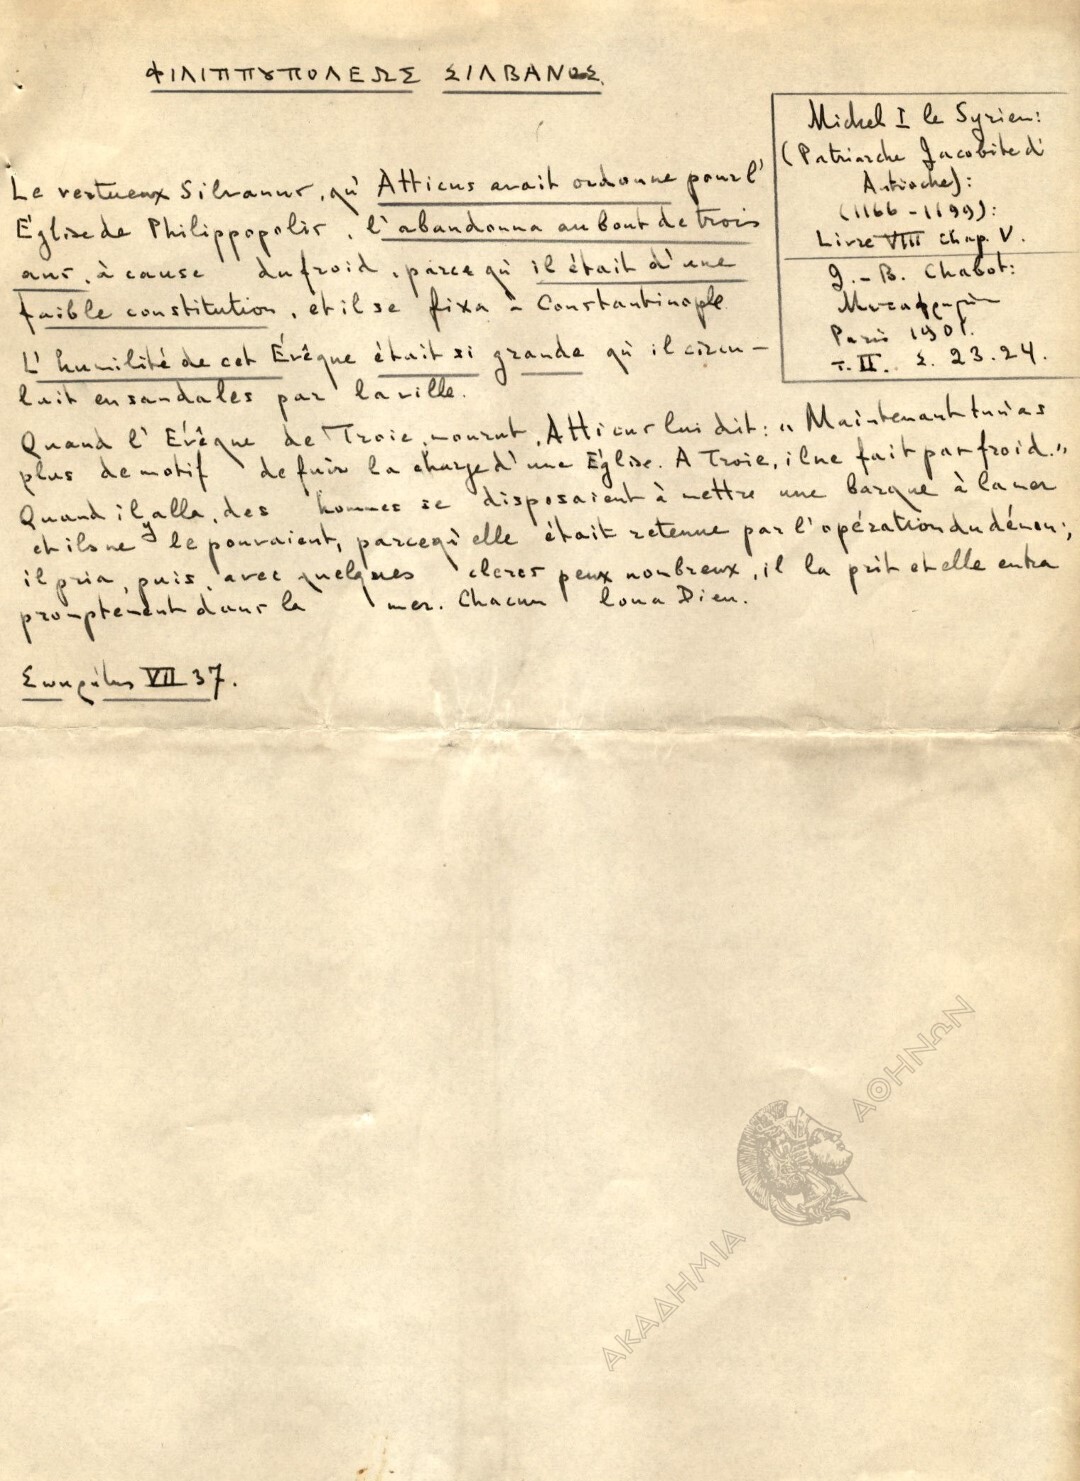 ΦΙΛΙΠΠȣΠΟΛΕΩΣ ΣΙΛΒΑΝΟΣ
Michel I le Syrien:
(Patriarche Jacobite d'
Antioche):
(1166-1199):
Livre VIII chap. V.
J.-B. Chabot:
Μετάφρασιν
Paris 1901.
T. II. Σ. 23.24.
Le vertueux Silvanus, qu' Atticus avait ordonne pour l'
Église de Philippopolis, l'abandonna au bout de trois
ans, à cause du froid, parce qu' il était d'une
faible constitution, et il se fixa à Constantinople
L' humilité de cet Évêque était si grande qu' il circu-
lait en sandales par la ville.
Quand l' Evêque de Troie, mourut, Atticus lui dit: « Maintenant tu n'as
plus de motif de fuir la charge d' une Église. A Troie, il ne fait pas froid.»
Quand il y alla, des hommes se disposaient à mettre une barque à la mer
et ils ne le pouvaient, parcequ' elle était retenue par l' opération du démon;
il pria, puis, avec quelques clercs peux nombreux, il la prit et elle entra
promptement dans la mer. Chacun loua Dieu.
Σωκράτης VII 37.
ΑΚΑΔΗΜΙΑ ΑΘΗΝΩΝ